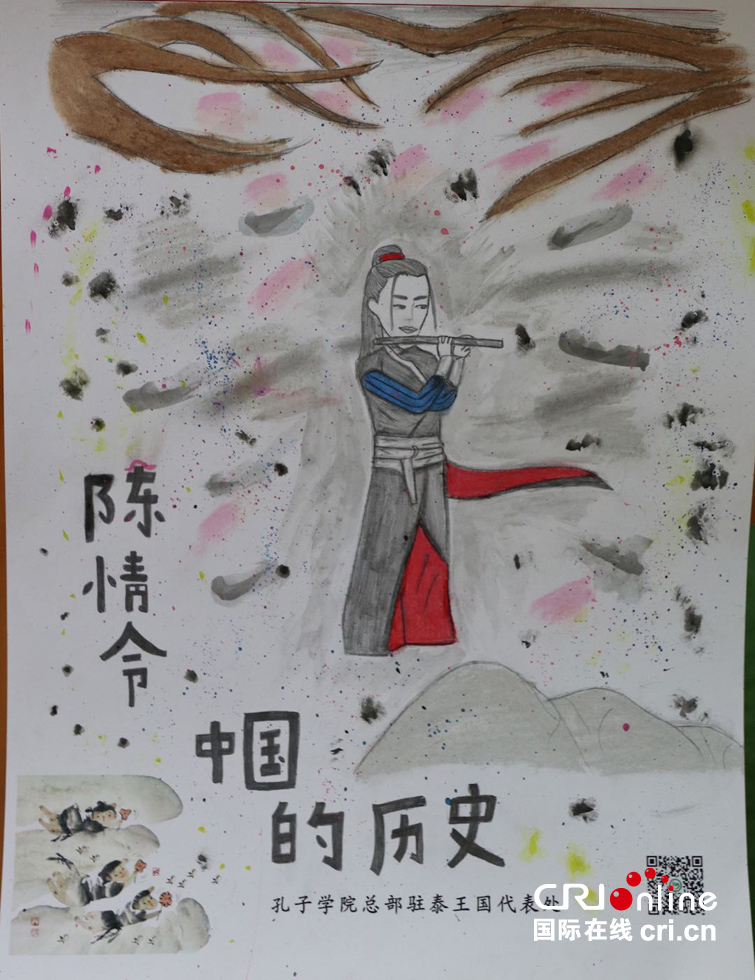 陈情令
中国
的历史
孔子学院总部驻泰王国代表处
CRI online
国际在线 cri.cn